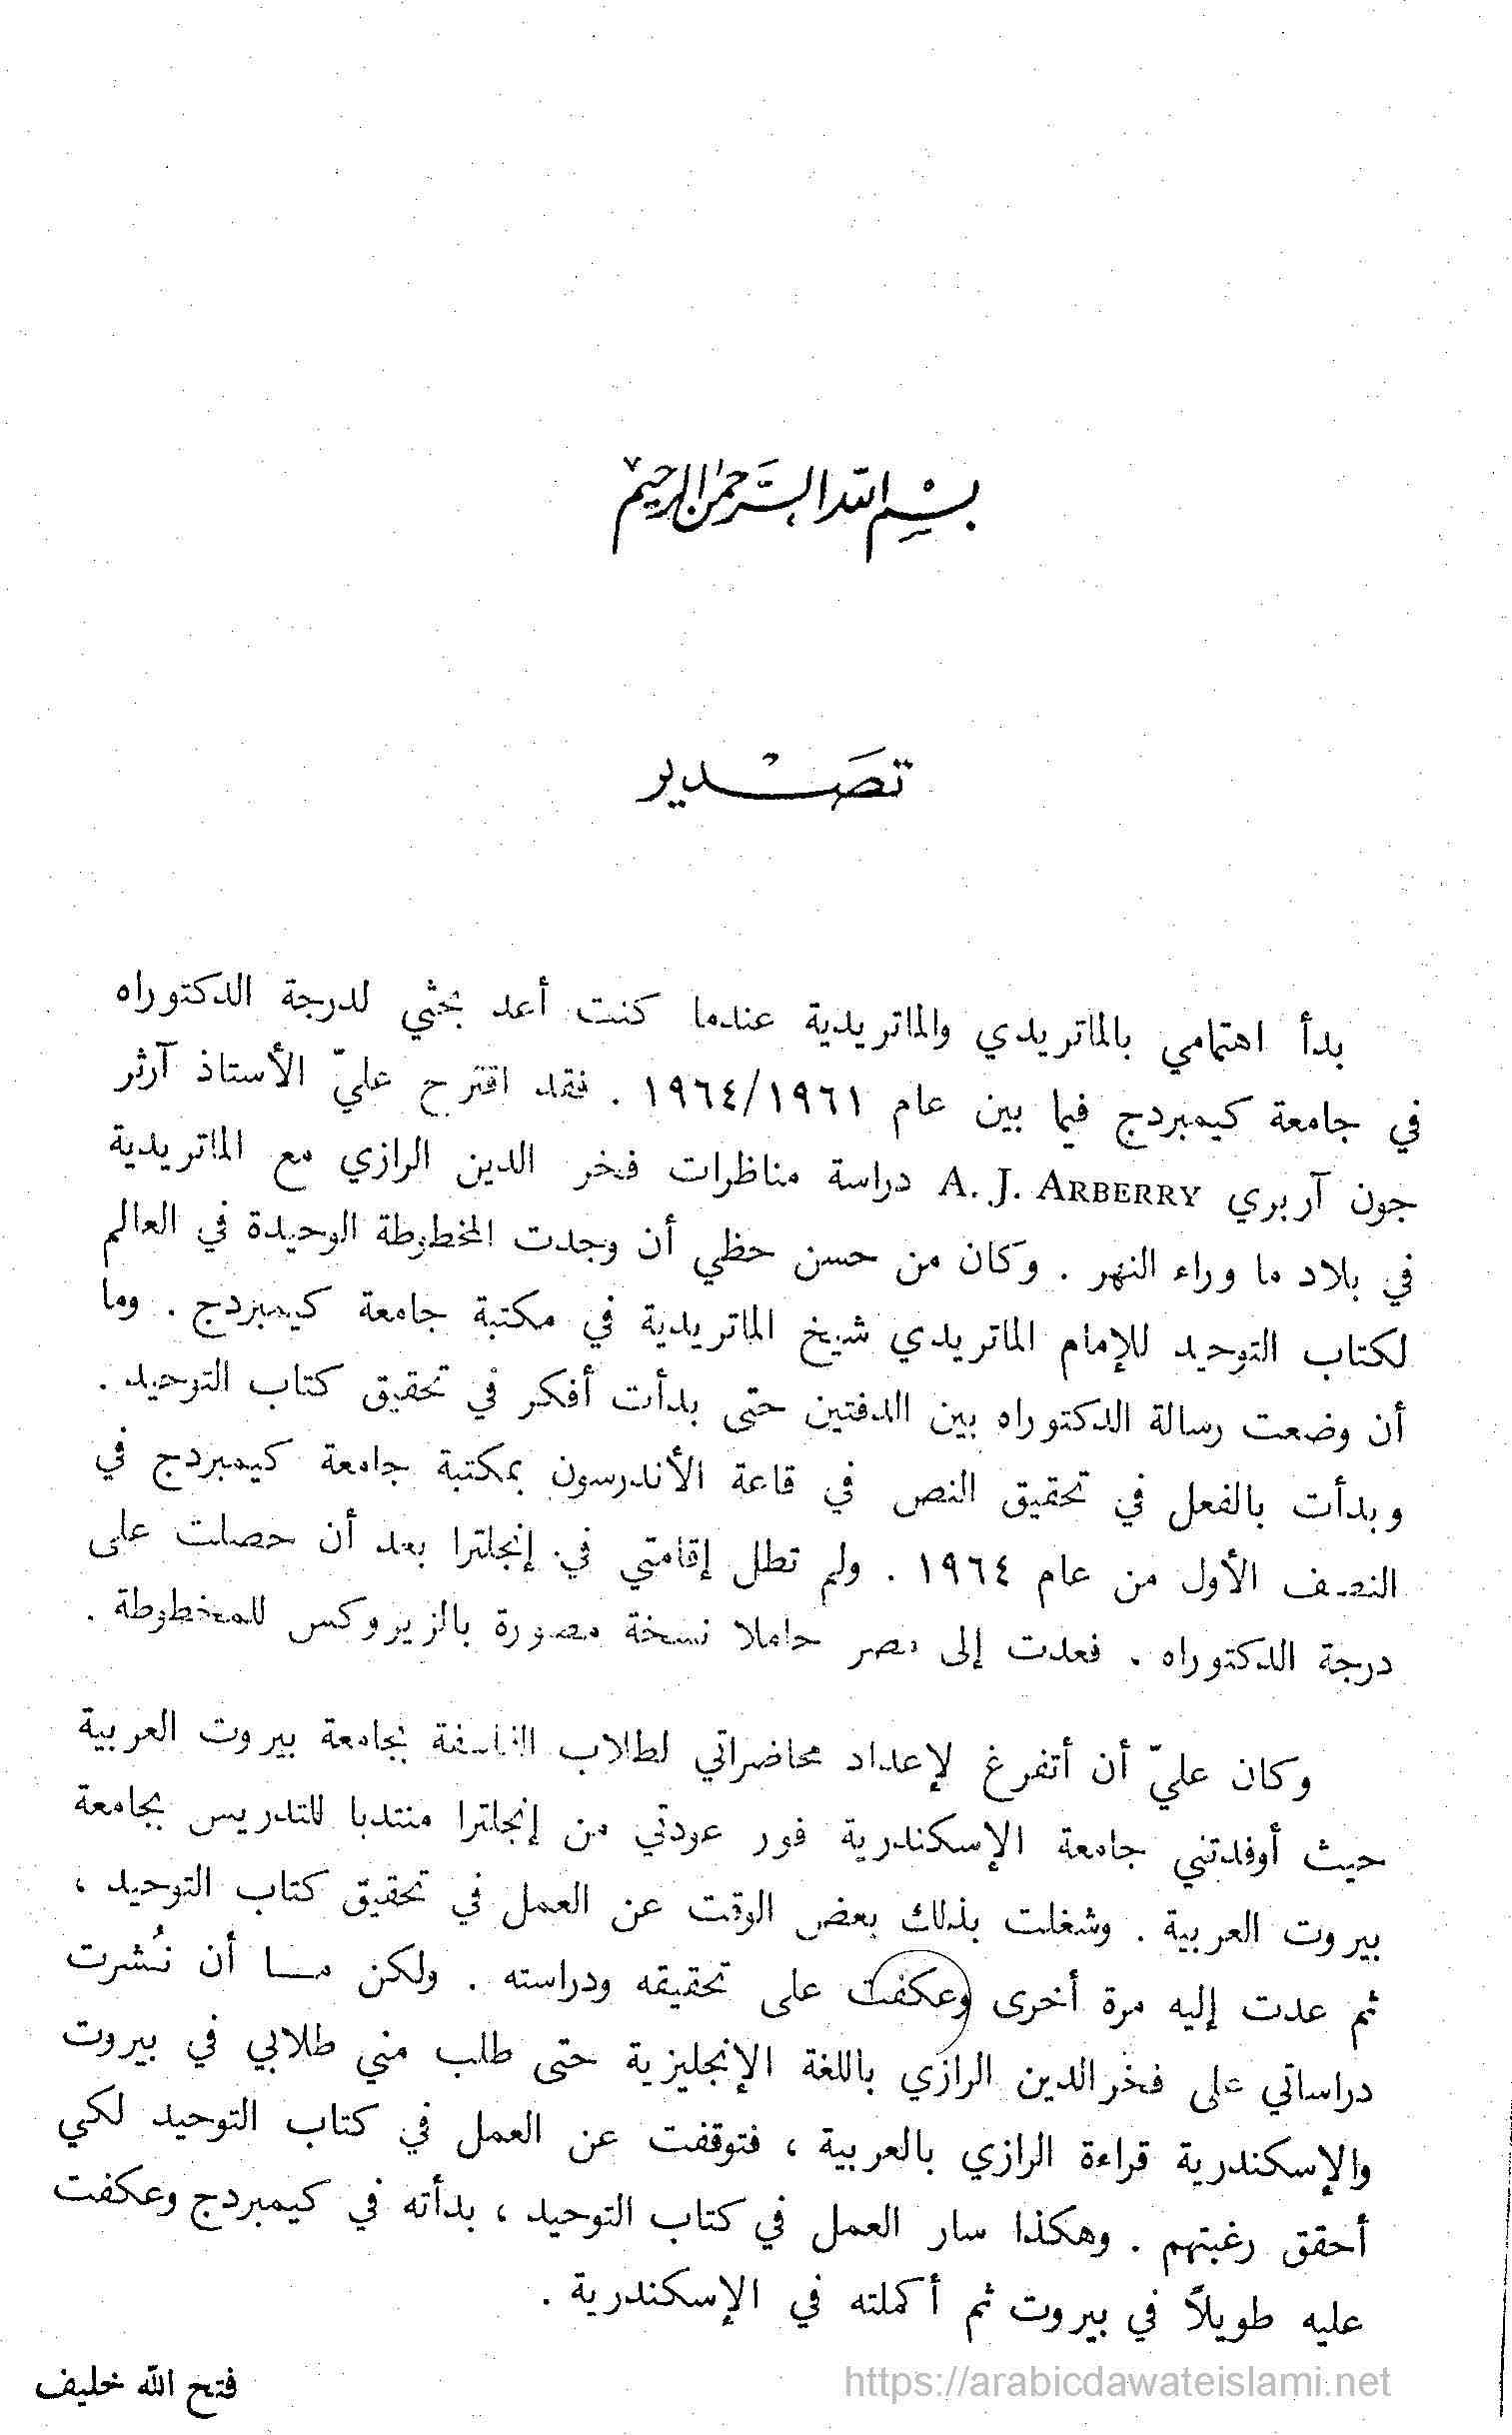 بسم الله الرحمن الرحيم
تصدير
بدأ اهتمامي بالماتريدي والماتريدية عندما كنت أعد بحثي لدرجة الدكتوراه
في جامعة كيمبردج فيما بين عام ١٩٦١/١٩٦٤ . فقد اقترح عليّ الأستاذ آرثر
جون آربري A. J. ARBERRY دراسة مناظرات فخر الدين الرازي مع الماتريدية
في بلاد ما وراء النهر . وكان من حسن حظي أن وجدت المخطوطة الوحيدة في العالم
لكتاب التوحيد للإمام الماتريدي شيخ الماتريدية في مكتبة جامعة كيمبردج . وما
أن وضعت رسالة الدكتوراه بين الدفتين حتى بدأت أفكر في تحقيق كتاب التوحيد .
وبدأت بالفعل في تحقيق النص في قاعة الأندرسون بمكتبة جامعة كيمبردج في
النصف الأول من عام ١٩٦٤ . ولم تطل إقامتي في إنجلترا بعد أن حصلت على
درجة الدكتوراه . فعدت إلى مصر حاملا نسخة مصورة بالزيروكس للمخطوطة .
وكان عليّ أن أتفرغ لإعداد محاضراتي لطلاب الفلسفة بجامعة بيروت العربية
حيث أوفدتني جامعة الإسكندرية فور عودتي من إنجلترا منتدبا للتدريس بجامعة
بيروت العربية . وشغلت بذلك بعض الوقت عن العمل في تحقيق كتاب التوحيد ،
ثم عدت إليه مرة أخرى وعكفت على تحقيقه ودراسته . ولكن مــا أن نُشرت
دراساتي على فخر الدين الرازي باللغة الإنجليزية حتى طلب مني طلابي في بيروت
والإسكندرية قراءة الرازي بالعربية ، فتوقفت عن العمل في كتاب التوحيد لكي
أحقق رغبتهم . وهكذا سار العمل في كتاب التوحيد ، بدأته في كيمبردج وعكفت
عليه طويلاً في بيروت ثم أكملته في الإسكندرية .
فتح الله خليف
https://arabicdawateislami.net